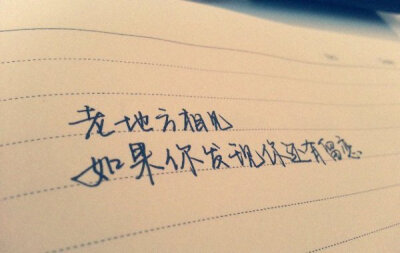 老地方相见
如果你发现你还有留恋